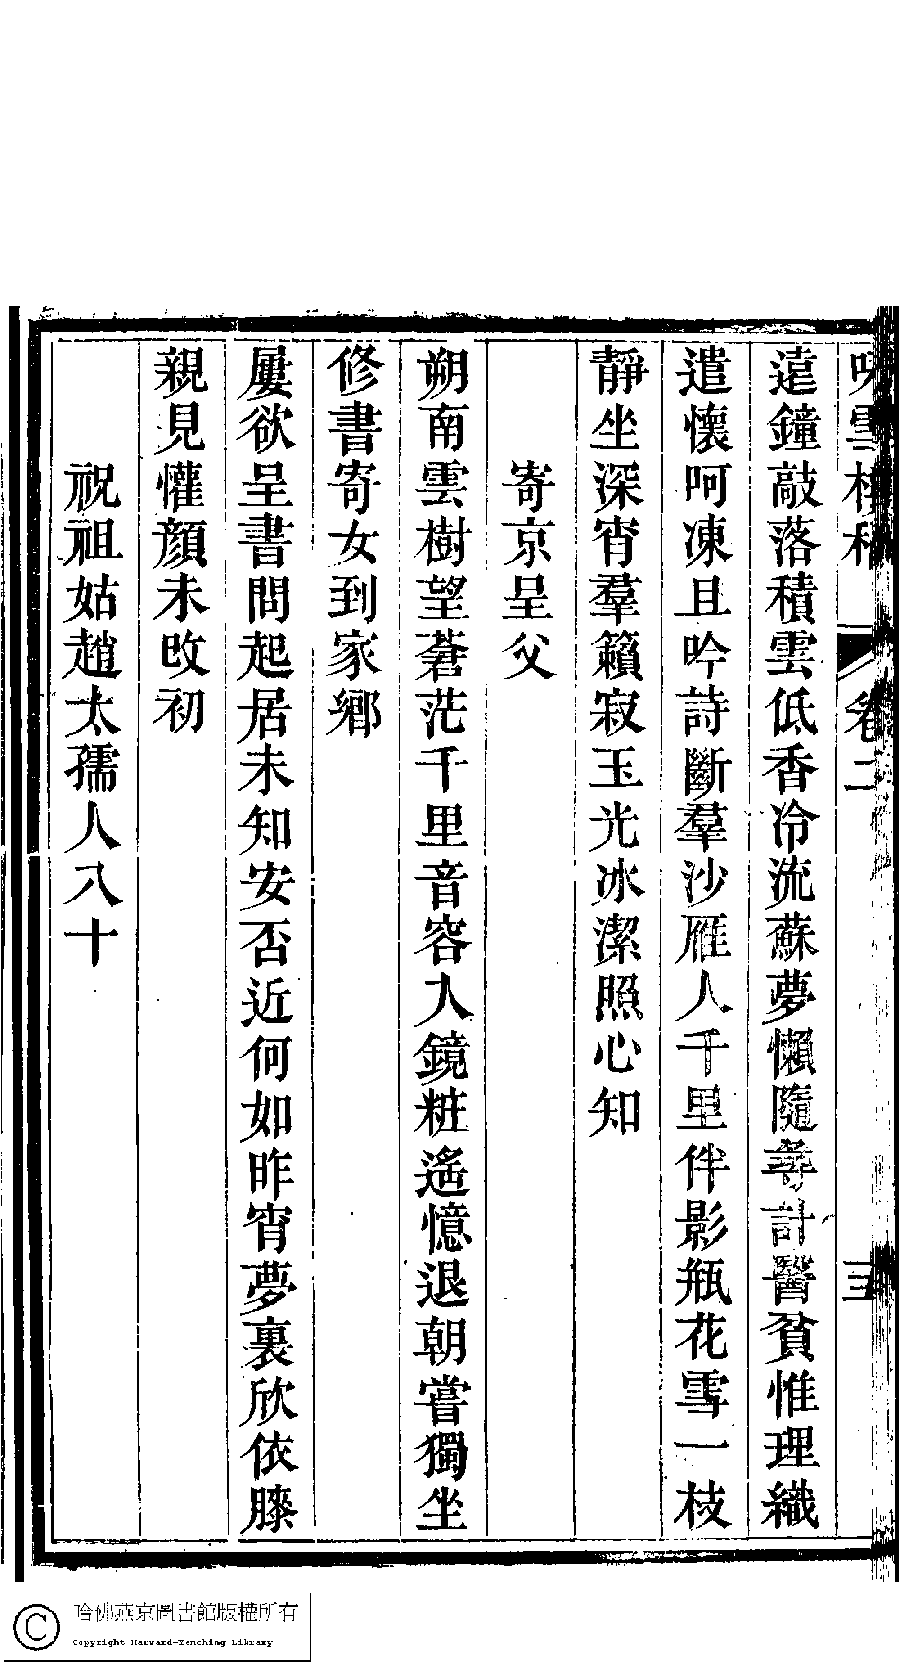 遠鐘敲落積雲低香冷流蘇夢懶隨尋計醫貧惟理織
遣懷呵凍且吟詩斷羣沙雁人千里伴影瓶花雪一枝
靜坐深宵羣籟寂玉光冰潔照心知
寄京呈父
朔南雲樹望蒼茫千里音容入鏡粧遙憶退朝嘗獨坐
修書寄女到家鄉
屢欲呈書問起居未知安否近何如昨宵夢裏欣依膝
親見懽顏未改初
祝祖姑趙太孺人八十
卷二
三
哈佛燕京圖書館版權所有
Copyright Harvard-Yenching Library